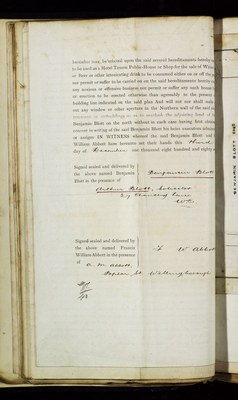 hereafter may be erected upon the said several hereditaments hereby
to be used as a Hotel Tavern Public House or Shop for the sale of Wine
or Beer or other intoxicating drink to be consumed either on or off the
nor permit or suffer to be carried on on the said hereditaments hereby
any noxious or offensive business nor permit or suffer any such house
or erection to be erected otherwise than agreeably to the present
building line indicated on the said plan And will not and shall make
out any window or other aperture in the Northern wall of the said
Benjamin Blott on the north without in each case having first
consent in writing of the said Benjamin Blott his heirs executors
or assigns IN WITNESS whereof the said Benjamin Blott and
William Abbott have hereunto set their hands this third
day of December one thousand eight hundred and eighty
Signed sealed and delivered by
the above named Benjamin
Blott in the presence of
Benjamin Blott
Arthur Blott, Solicitor
Chancery Lane
Signed sealed and delivered by
the above named Francis
William Abbott in the presence
of
F W Abbott
Abbott
St Wellingborough
BENJAMIN BLOTT